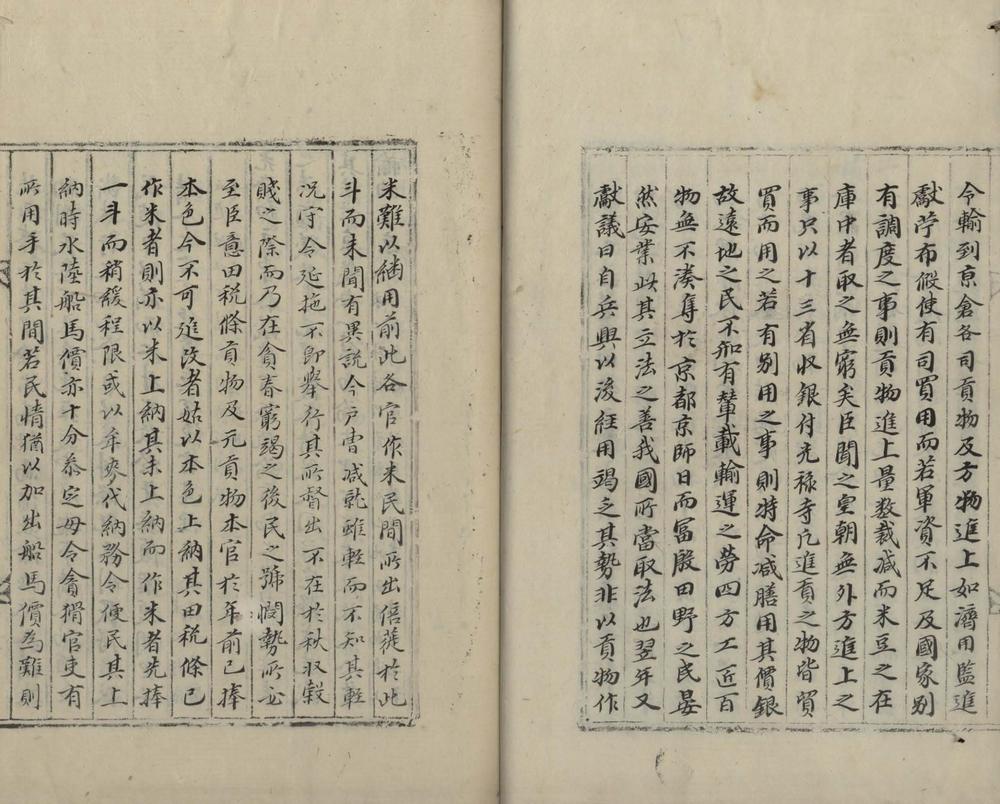 令輸到京倉各司貢物及方物進上如濟用監進
獻苧布假使有司買用而若軍資不足及國家別
有調度之事則貢物進上量數裁減而米豆之在
庫中者取之無窮矣臣聞之皇朝無外方進上之
事只以十三省收銀付光祿寺凡進貢之物皆買
買而用之若有別用之事則特命减膳用其價銀
故遠地之民不知有輦載輸運之勞四方工匠百
物無不湊集於京都京師日而冨殷田野之民晏
然安業此其立法之善我國所當取法也翌年又
獻議曰自兵興以後經用竭乏其勢非以貢物作
米難以繼用前此各官作米民間所出倍蓰於此
斗而未聞有異說今戶曹减乾雖輕而不知其輕
况守令延拖不即舉行其所督出不在於秋收穀
賤之際而乃在貪春窮竭之後民之號憫勢所必
至臣意田稅條貢物及元貢物本官於年前已捧
本色今不可追改者姑以本色上納其田稅條已
作米者則亦以米上納其未上納而作米者先捧
一斗而稍緩程限或以牟麥代納務令便民其上
納時水陸船馬價亦十分參定毋令貪猾官吏有
所用手於其間若民情猶以加出船馬價為難則